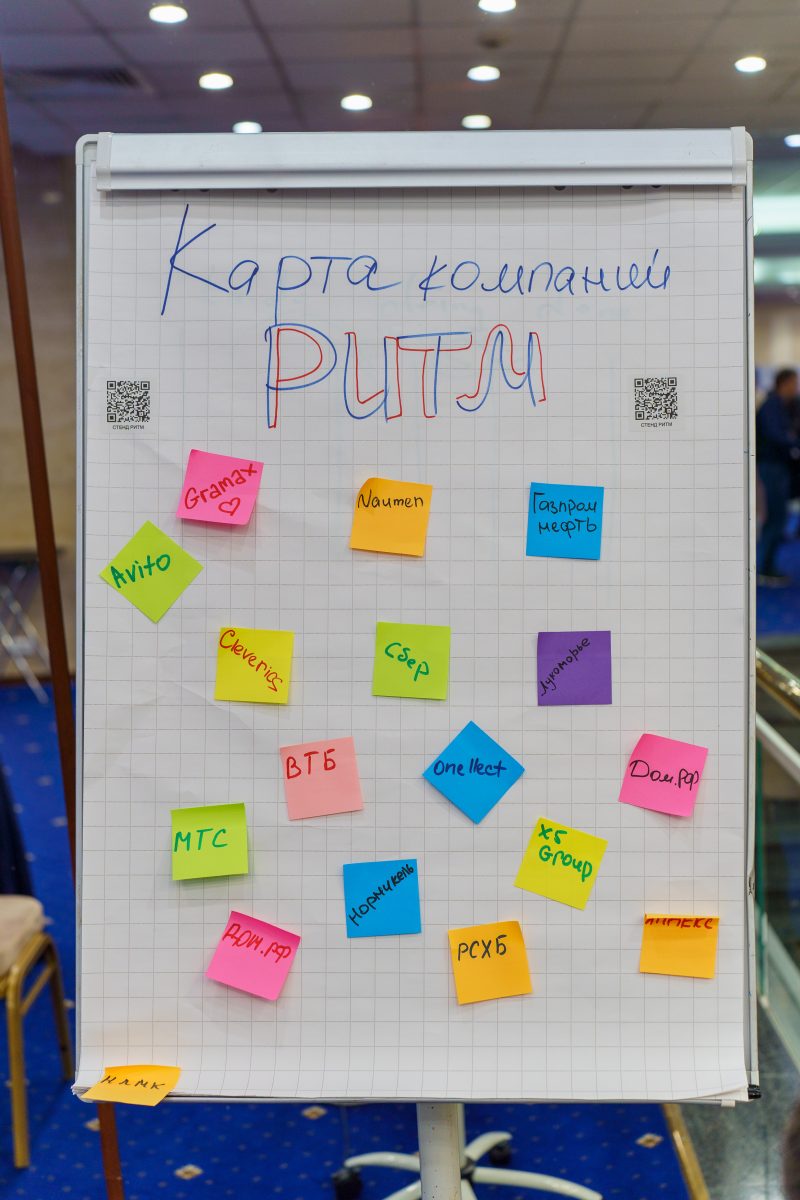 Карта компаний
РИТМ
СТЕНД РИТМ
СТЕНД РИТМ
Gramax
Naumen
Газпром
нефть
Avito
Cleverics
Сбер
Лукоморье
ВТБ
Onellect
Дом.рф
МТС
X5
Group
Норникель
ДОМ.РФ
РСХБ
НЛМК